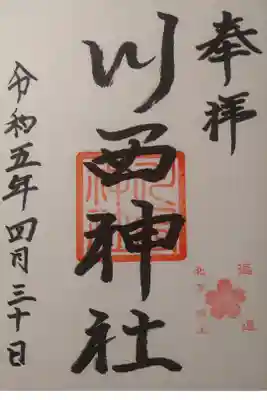 奉拝
川西神社
令和五年四月三十日